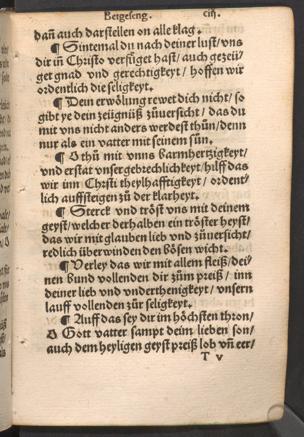 Betgeseng. ciij.
dañ auch darstellen on alle klag.
¶ Sintemal du nach deiner lust/vns
dir in Christo versüget hast/auch gezeü/
get gnad vnd gerechtigkeyt/ hoffen wir
ordentlich die seligkeyt.
¶ Dein erwölung rewet dich nicht/ so
gibt ye dein zeügnüß zůuersicht/ das du
mit vns nicht anders werdest thůn/denn
nur als ein vatter mit seinem sůn.
¶ O thů mit vnns barmhertzigkeyt/
vnd erstat vnser gebrechlichkeyt/hilff das
wir im Christi theylhafftigkeyt/ ordent/
lich auffsteigen zů der klarheyt.
¶ Sterck vnd tröst vns mit deinem
geyst/welcher derhalben ein tröster heyst/
das wir mit glauben lieb vnd zůuersicht/
redlich überwinden den bösen wicht.
¶ Verley das wir mit allem fleiß/dei/
nen bund vollenden dir zům preiß/ inn
deiner lieb vnd vnderthenigkeyt/ vnsern
lauff vollenden zůr seligkeyt.
¶ Auff das sey dir im höchsten thron/
O Gott vatter sampt deim lieben son/
auch dem heyligen geyst preiß lob vñ eer/
T v